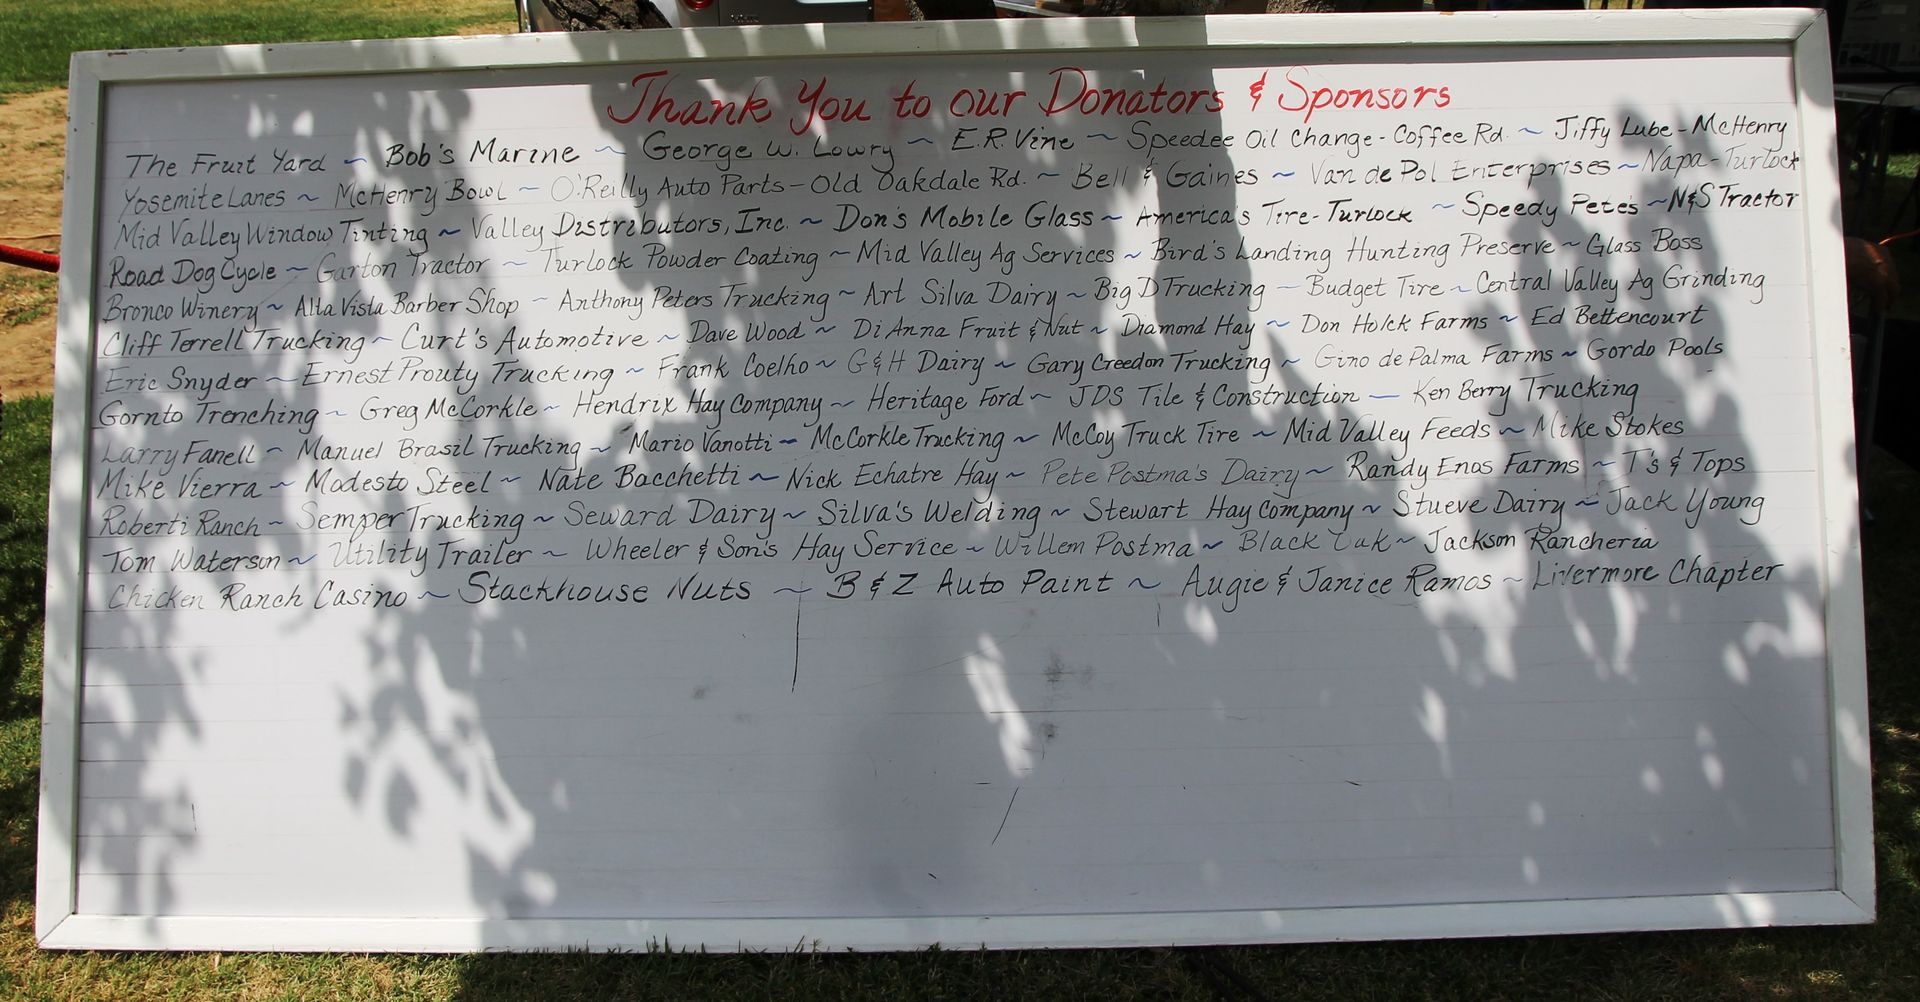 Thank You to our Donators & Sponsors
The Fruit Yard ~ Bob's Marine ~ George W. Lowry ~ E.R. Vine ~ Speedee Oil Change - Coffee Rd. ~ Jiffy Lube - McHenry
Yosemite Lanes ~ McHenry Bowl ~ O'Reilly Auto Parts - Old Oakdale Rd. ~ Bell & Gaines ~ Van de Pol Enterprises ~ Napa - Turlock
Mid Valley Window Tinting ~ Valley Distributors, Inc. ~ Don's Mobile Glass ~ America's Tire - Turlock ~ Speedy Pete's ~ N&S Tractor
Road Dog Cycle ~ Garton Tractor ~ Turlock Powder Coating ~ Mid Valley Ag Services ~ Bird's Landing Hunting Preserve ~ Glass Boss
Bronco Winery ~ Alta Vista Barber Shop ~ Anthony Peters Trucking ~ Art Silva Dairy ~ Big D Trucking ~ Budget Tire ~ Central Valley Ag Grinding
Cliff Terrell Trucking ~ Curt's Automotive ~ Dave Wood ~ DiAnna Fruit & Nut ~ Diamond Hay ~ Don Holck Farms ~ Ed Bettencourt
Eric Snyder ~ Ernest Prouty Trucking ~ Frank Coelho ~ G&H Dairy ~ Gary Creedon Trucking ~ Gino de Palma Farms ~ Gordo Pools
Gornto Trenching ~ Greg McCorkle ~ Hendrix Hay Company ~ Heritage Ford ~ JDS Tile & Construction ~ Ken Berry Trucking
Larry Fanell ~ Manuel Brasil Trucking ~ Mario Vanotti ~ McCorkle Trucking ~ McCoy Truck Tire ~ Mid Valley Feeds ~ Mike Stokes
Mike Vierra ~ Modesto Steel ~ Nate Bacchetti ~ Nick Echatre Hay ~ Pete Postma's Dairy ~ Randy Enos Farms ~ T's & Tops
Roberti Ranch ~ Semper Trucking ~ Seward Dairy ~ Silva's Welding ~ Stewart Hay Company ~ Stueve Dairy ~ Jack Young
Tom Waterson ~ Utility Trailer ~ Wheeler & Son's Hay Service ~ Willem Postma ~ Black Oak ~ Jackson Rancheria
Chicken Ranch Casino ~ Stackhouse Nuts ~ B & Z Auto Paint ~ Augie & Janice Ramos ~ Livermore Chapter